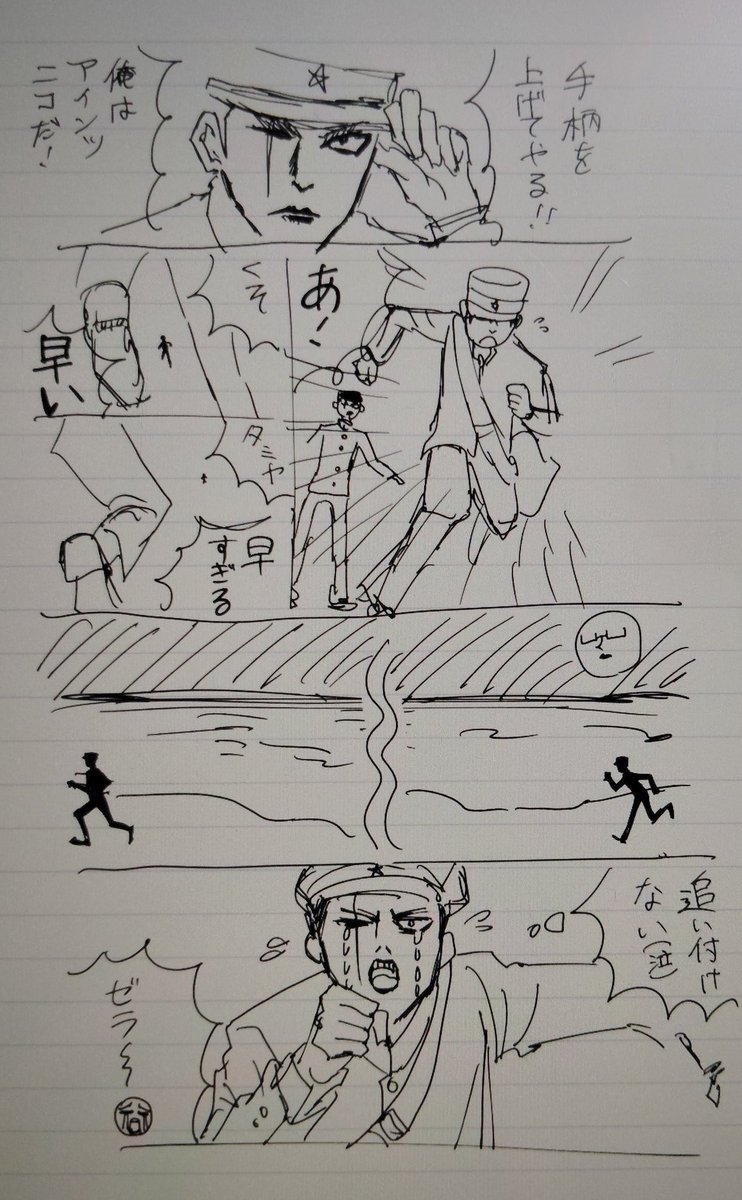 手柄を
上げてやる!!
俺は
アインツ
ニコだ!
あ!
くそ
早い
タミヤ
早
すぎる
追い付け
ない(泣
ゼラぁ